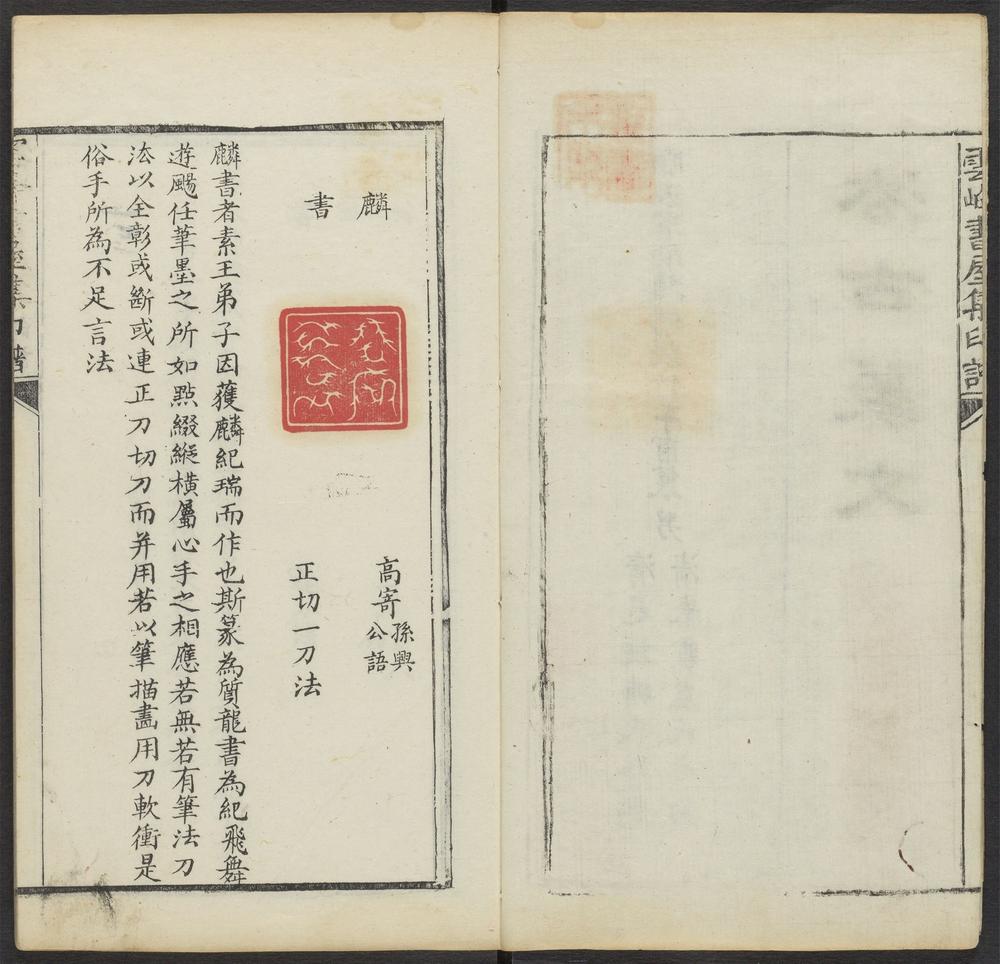 雲峰書屋集印譜
麟書
高寄孫興公語
正切一刀法
麟書者素王弟子因獲麟紀瑞而作也斯篆為質龍書為紀飛舞
遊颺任筆墨之所如點綴縱橫屬心手之相應若無若有筆法刀
法以全彰或斷或連正刀切刀而并用若以筆描畫用刀軟衝是
俗手所為不足言法